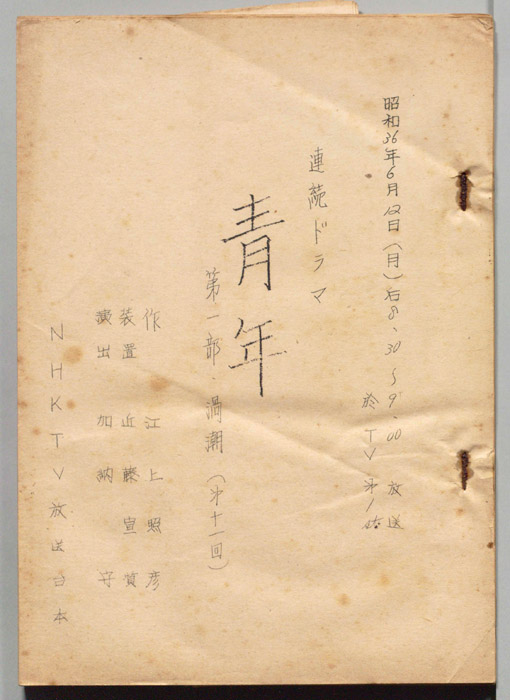 昭和36年6月12日(月)后8.30〜9.00 放送
於 TV 第1
連続ドラマ
青年
第一部・渦潮(第十一回)
作 江上照彦
装置 近藤宣質
演出 加納守
NHKTV放送台本